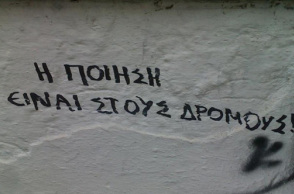 Η ΠΟΙΗΣΗ
ΕΙΝΑΙ ΣΤΟΥΣ ΔΡΟΜΟΥΣ!